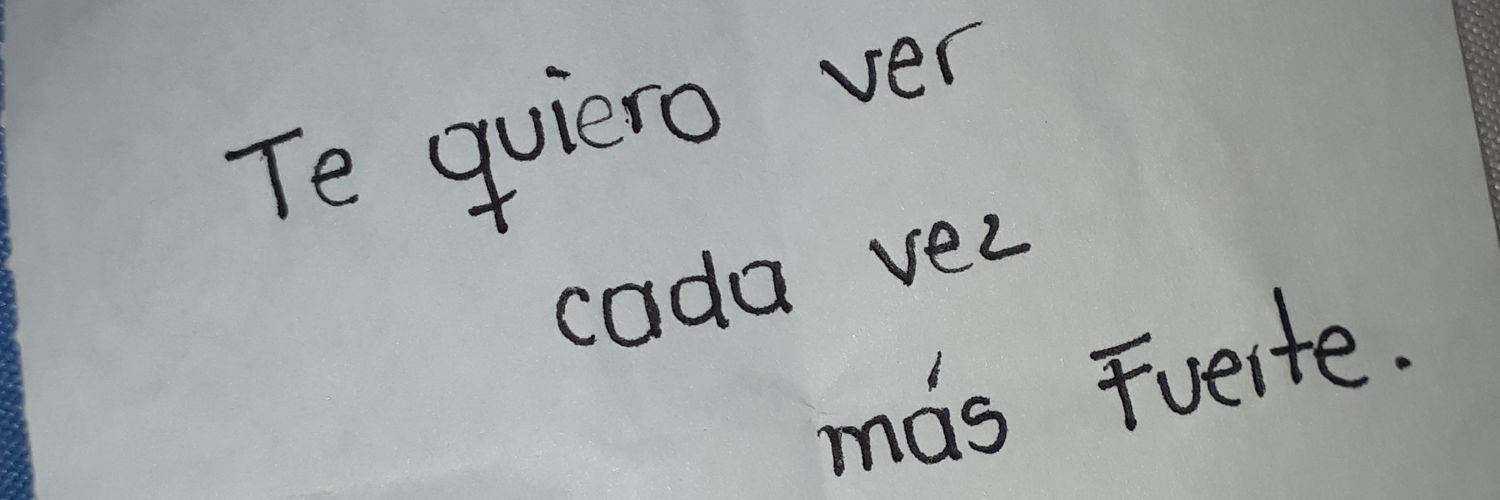 Te quiero ver
cada vez
más Fuerte.